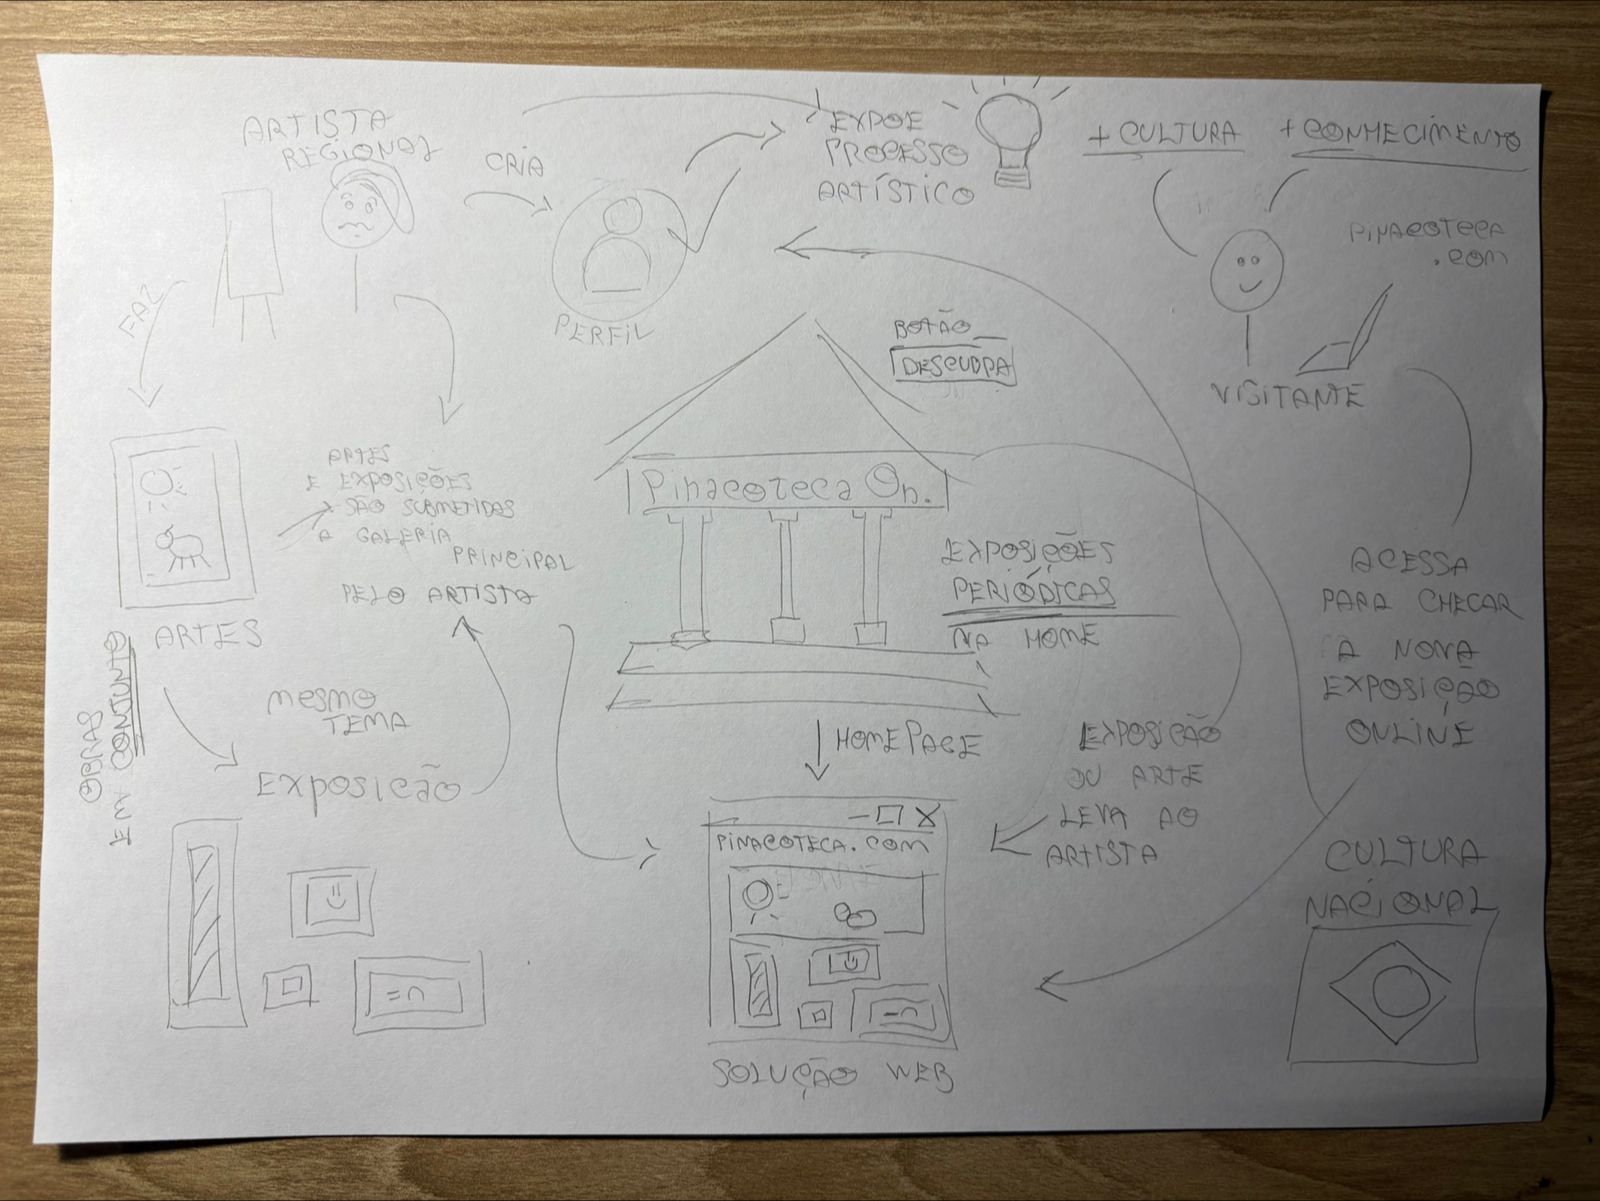 ARTISTA
REGIONAL
CRIA
EXPOE
PROCESSO
ARTÍSTICO
+ CULTURA
+ CONHECIMENTO
PINACOTECA
.COM
PERFIL
FAZ
BOTÃO
DESCUBRA
VISITANTE
ARTES
E EXPOSIÇÕES
SÃO SUBMETIDAS
A GALERIA
PRINCIPAL
PELO ARTISTA
Pinacoteca On.
EXPOSIÇÕES
PERIÓDICAS
NA HOME
ACESSA
PARA CHECAR
A NOVA
EXPOSIÇÃO
ONLINE
ARTES
OBRAS
EM CONJUNTO
MESMO
TEMA
EXPOSICÃO
HOMEPAGE
EXPOSICÃO
OU ARTE
LEVA AO
ARTISTA
PINACOTECA.COM
CULTURA
NACIONAL
SOLUÇÃO WEB